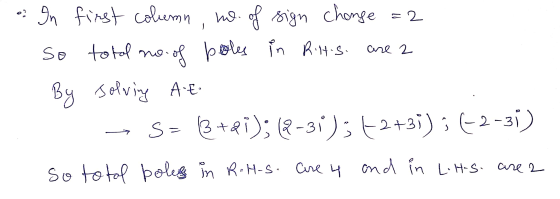 ∵ In first column, no. of sign change = 2
So total no. of poles in R.H.S. are 2
By solving A.E.
→ S = (3+2i); (2-3i); (-2+3i); (-2-3i)
So total poles in R.H.S. are 4 and in L.H.S. are 2